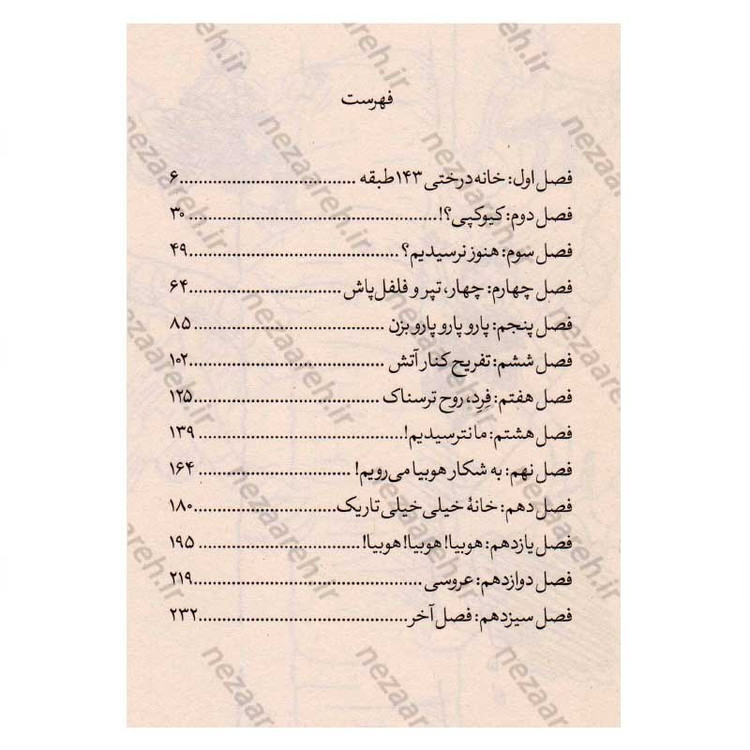 فهرست
فصل اول: خانه درختی ۱۴۳ طبقه ....................................۶
فصل دوم: کیوکپی؟!....................................................۳۰
فصل سوم: هنوز نرسیدیم؟............................................۴۹
فصل چهارم: چهار، تپر و فلفل‌پاش................................۶۴
فصل پنجم: پارو پارو پارو بزن ........................................۸۵
فصل ششم: تفریح کنار آتش ........................................۱۰۲
فصل هفتم: فِرِد، روح ترسناک ......................................۱۲۵
فصل هشتم: ما نترسیدیم!...........................................۱۳۹
فصل نهم: به شکار هوبیا می‌رویم! ................................۱۶۴
فصل دهم: خانهٔ خیلی خیلی تاریک..............................۱۸۰
فصل یازدهم: هوبیا! هوبیا! هوبیا!..................................۱۹۵
فصل دوازدهم: عروسی ................................................۲۱۹
فصل سیزدهم: فصل آخر............................................۲۳۲
nezaareh.ir